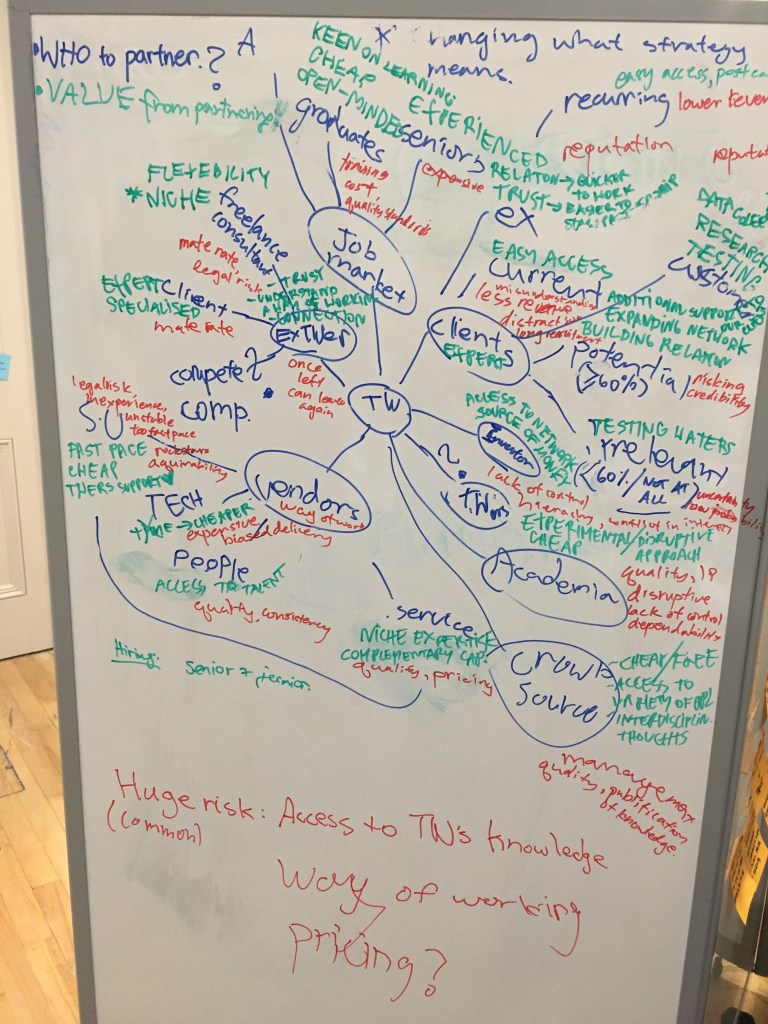 • WHO to partner?
A
• VALUE from partnering
hanging what strategy
means.
KEEN ON LEARNING
CHEAP
OPEN-MINDED
graduates
training
cost,
quality standards
EXPERIENCED
seniors
expensive
easy access,
recurring lower
reputation
RELATION → QUICKER
TO WORK
TRUST → EAGER TO
ex
FLEXEBILITY
* NICHE
freelance
consultant
mate rate
legal risk
Job
market
EXPERT
SPECIALISED
client
mate rate
- TRUST
- UNDERSTAND
WAY OF WORKING
- CONNECTION
EXTWer
once
left
can leave
again
compete?
comp.
EASY ACCESS
current
misunderstanding
less revenue
distraction
long recruitment
clients
EXPERTS
RESEARCH
TESTING
ADDITIONAL SUPPORT
EXPANDING NETWORK
BUILDING RELATION
potential
(≥60%)
risking
credibility
TESTING WATERS
irrelevant
(<60%/NOT AT
ALL)
TW
ACCESS TO NETWORK
SOURCE OF MONEY
Investor
lack of control
hierarchy, conflict in interest
?
legal risk
inexperience,
unstable
too fast pace
S.U
FAST PACE
CHEAP
OTHERS SUPPORT
aquirability
vendors
way of work
TECH
TIME → CHEAPER
expensive
biased delivery
People
ACCESS TO TALENT
quality, consistency
service
NICHE EXPERTISE
COMPLEMENTARY CAP.
quality, pricing
EXPERIMENTAL/DISRUPTIVE
CHEAP APPROACH
Academia
quality, IP
disruptive
lack of control
dependability
crowd
source
- CHEAP/FREE
- ACCESS TO
VARIETY OF PPL
- INTERDISCIPLIN.
THOUGHTS
management
quality, publification
of knowledge.
Hiring:
Senior & junior.
Huge risk: Access to TW's knowledge
(common)
Way of working
pricing?